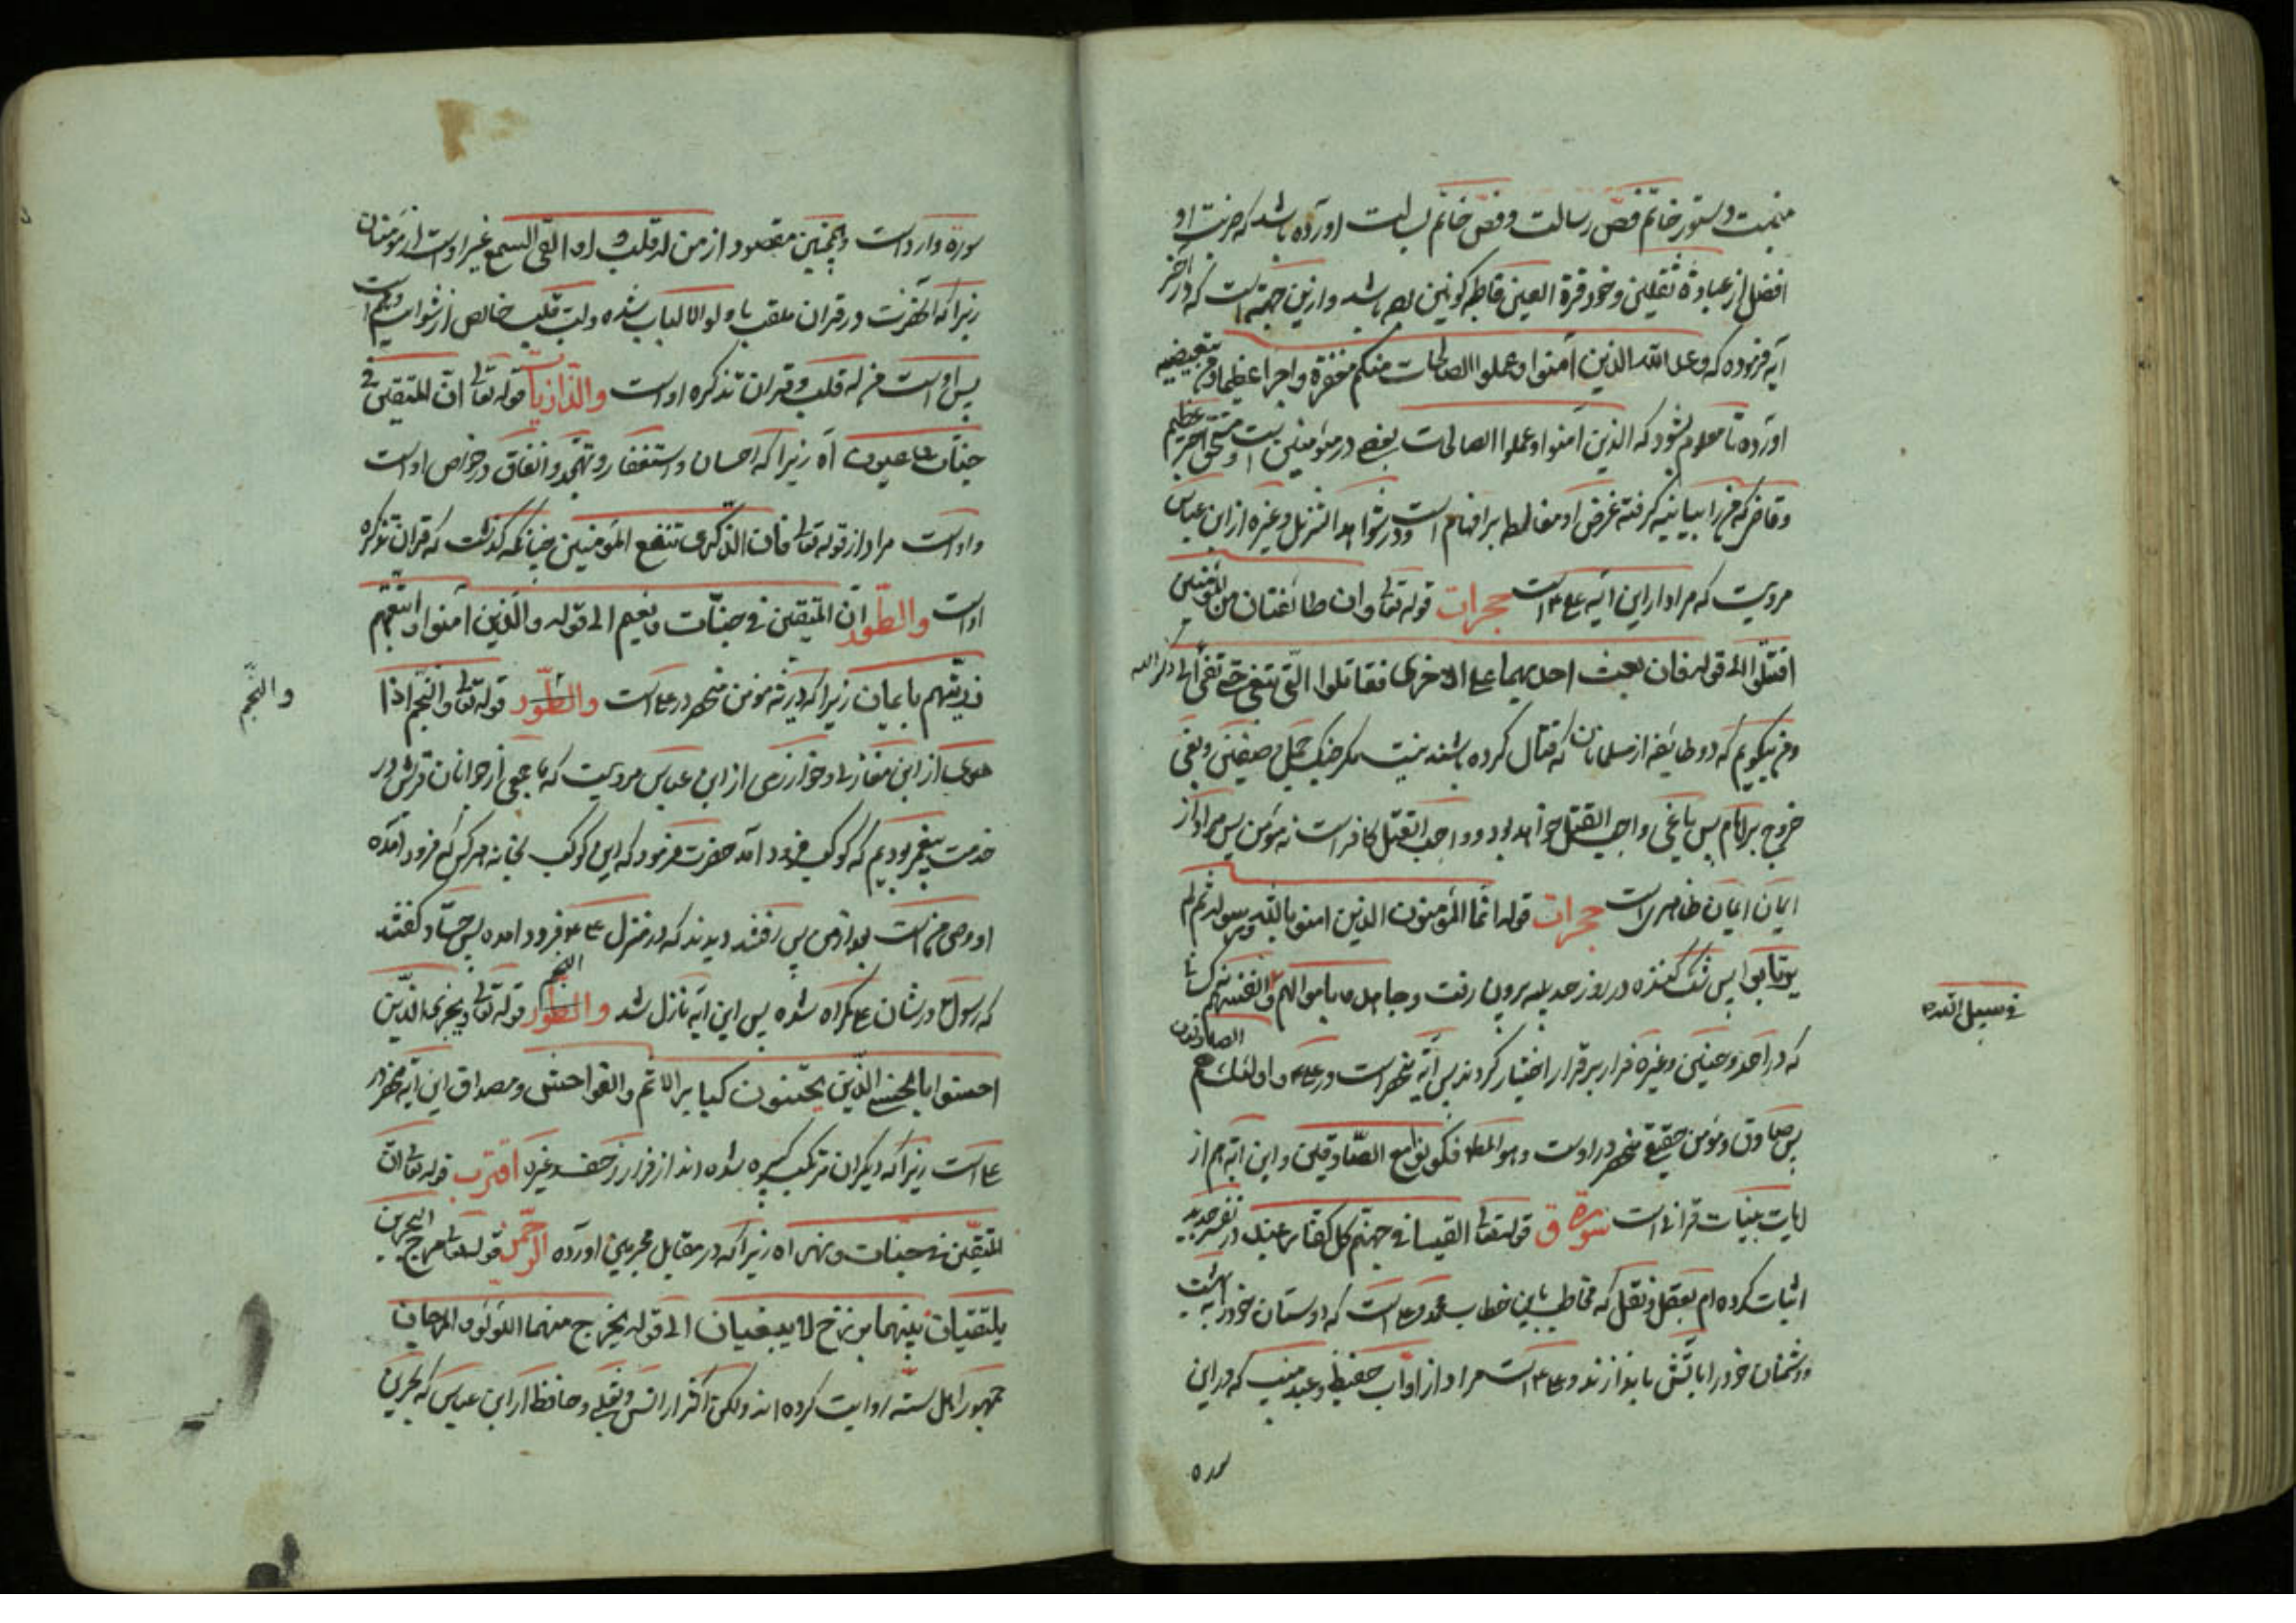 منجبت و ستور خاتم فص رسالت و فص خاتم بسالت اورده باشد که ضربت او
افضل از عبادة ثقلین و خود قرة العین قاطبه کونین بوده باشد و ازین جهت است که در اخر
آیه فرموده که وعد الله الذین آمنوا وعملوا الصالحات منکم مغفرة واجرا عظیما و من تبعیضیه
اورده تا معلوم بشود که الذین آمنوا وعملوا الصالحات بعضی در مؤمنین نیست و مستحق اجر عظیم
و قاضی که من را بیانیه گرفته غرض او مغالطه بر افهام است و در شواهد التنزیل و غیره از ابن عباس
مرویست که مراد از این آیه ع است حجرات قوله تعا وان طائفتان من المؤمنین
اقتتلوا الی قوله فان بغت احدیهما علی الاخری فقاتلوا الّتی تبغی حتی تفئ الی امر الله
و من میگویم که دو طایفه از مسلمانان که قتال کرده باشند نیست مگر جنگ جمل و صفین و بغی
خروج بر امام پس باغی واجب القتل خواهد بود و واجب القتل کافر است نه مؤمن پس مراد از
ایمان ایمان ظاهری است حجرات قوله انما المؤمنون الذین امنوا بالله ورسوله ثم لم
یرتابوا پس شک کننده در روز حدیبیه بیرون رفت وجاهدوا باموالهم وانفسهم
فی سبیل الله
که در احد و حنین و غیره فرار بر قرار اختیار کردند پس آیه منحصر است در ع واولئک هم الصادقون
پس صادق و مؤمن حقیقی منحصر در اوست و هو المط فکونوا مع الصّادقین و این آیه هم از
آیات بینات قرانی است سورة ق قوله تعا القیا فی جهنم کل کفار عنید در تفسیر جدید
اثبات کرده ام بعقل و نقل که مخاطب باین خطاب محمد و ع است که دوستان خود را به بهشت
و دشمنان خود را بآتش باندازند و ع است مراد از اواب حفیظ و عبد منیب که در این
سوره
سوره وارد است و همچنین مقصود از من له قلب او القی السمع غیر او است از مؤمنان
زیرا که آنحضرت در قران ملقب باولو الالباب شده ولب قلب خالص از شوایب وهم است
پس او است من له قلب و قران تذکره او است والذّاریات قوله تعا انّ المتقین فی
جنّات وعیون آه زیرا که احسان و استغفار و تهجّد و انفاق در خواص او است
و او است مراد از قوله تعا فان الذکری تنفع المؤمنین چنانکه گذشت که قران تذکره
او است والطّور انّ المتقین فی جنّات ونعیم الی قوله والّذین آمنوا واتبعتهم
ذریّتهم بایمان زیرا که ذریّه مؤمن منحصر در ع است والطّور قوله تعا والنّجم اذا
والنّجم
هوی از ابن مغازلی و خوارزمی از ابن عباس مرویست که با جمعی از جوانان قریش در
خدمت پیغمبر بودیم که کوکب فرود آمد حضرت فرمود که این کوکب بخانه هر کس که فرود آمده
او وصی من است بعد از من پس رفتند دیدند که در منزل ع فرود آمده پس حسّاد گفتند
که رسول در شان ع گمراه شده پس این آیه نازل شد والطّور النجم قوله تعا ویجزی الذّین
احسنوا بالحسنی الّذین یجتنبون کبایر الاثم والفواحش و مصداق این آیه منحصر در
ع است زیرا که دیگران مرتکب کبیره شده اند از فرار زحف و غیره اقترب قوله تعا انّ
المتّقین فی جنات ونهر آه زیرا که در مقابل مجرمین اورده الرحمن قوله تعا مرج البحرین
یلتقیان بینهما برزخ لا یبغیان الی قوله یخرج منهما اللؤلؤ والمرجان
جمهور اهل سنّه روایت کرده اند ولکن اکثر از انس و ثعلبی و حافظ از ابن عباس که بحرین